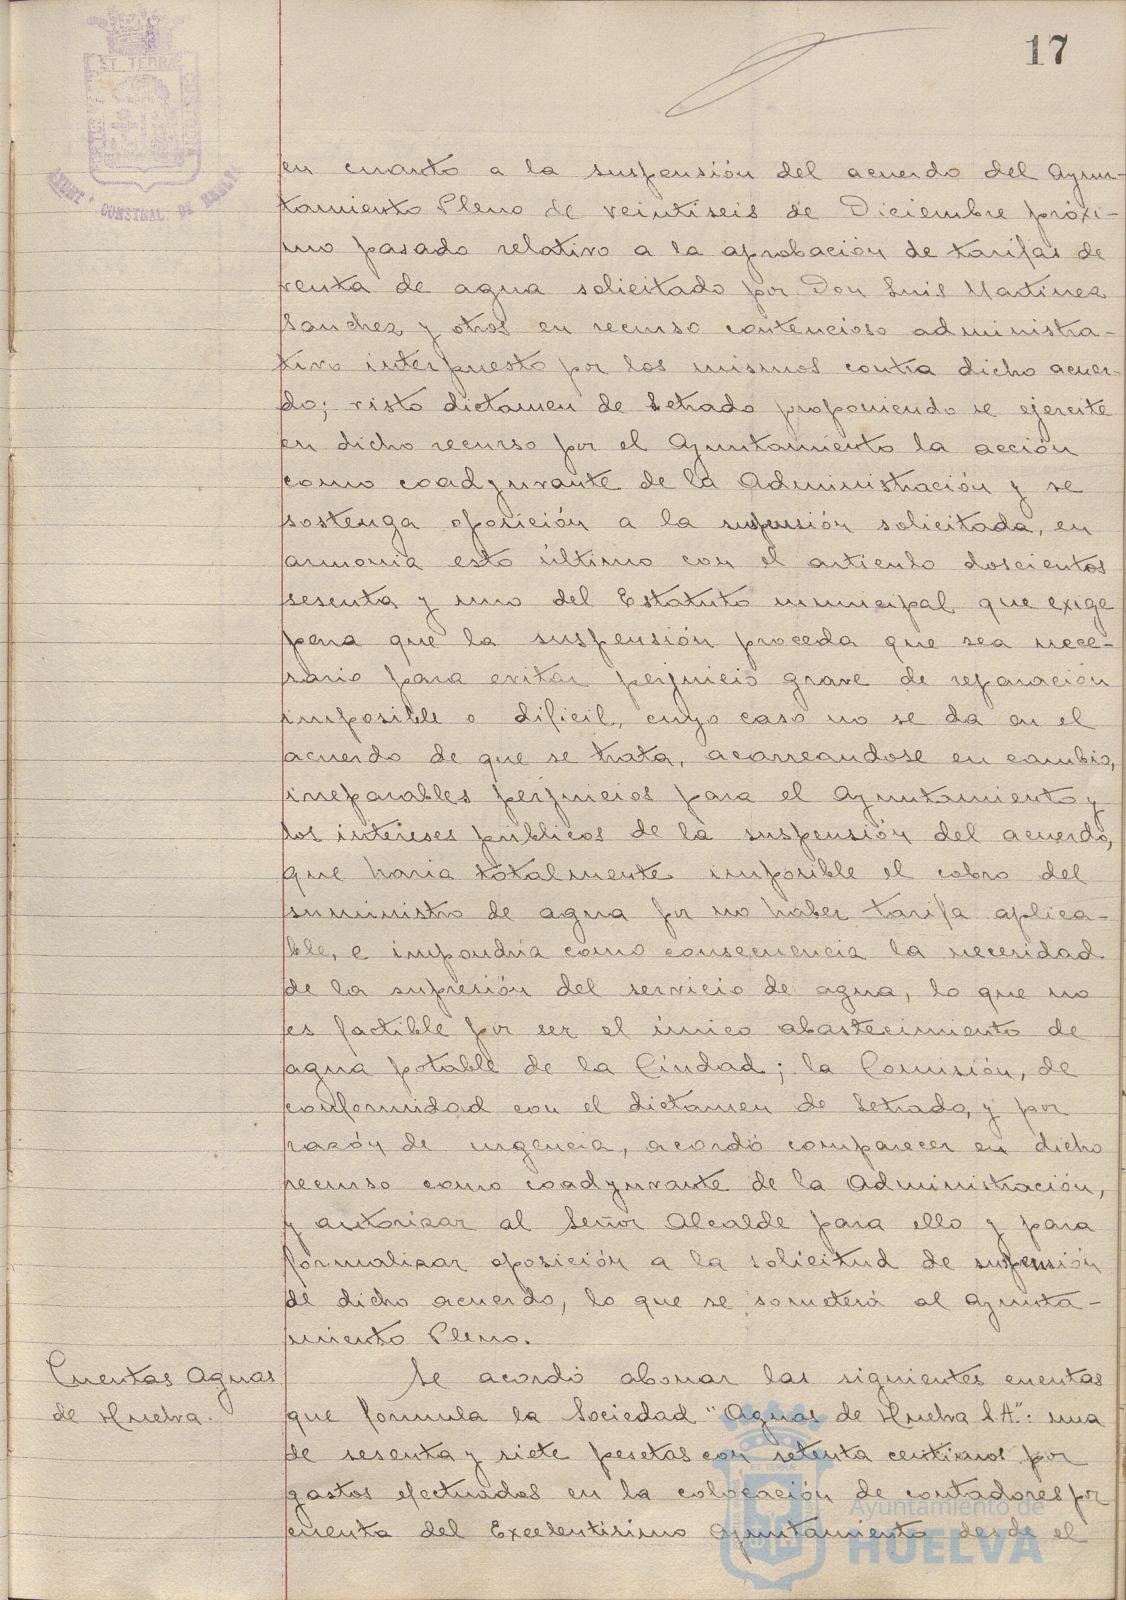 17
ST TERRÆ
AYUNT° CONSTNAL. DE HUELVA
en cuanto a la suspensión del acuerdo del Ayun-
tamiento Pleno de veintiseis de Diciembre próxi-
mo pasado relativo a la aprobación de tarifas de
venta de agua solicitado por Don Luis Martinez
Sanchez y otros en recurso contencioso administra-
tivo interpuesto por los mismos contra dicho acuer-
do; visto dictamen de Letrado proponiendo se ejercite
en dicho recurso por el Ayuntamiento la acción
como coadyuvante de la Administración y se
sostenga oposición a la suspensión solicitada, en
armonia esto último con el articulo doscientos
sesenta y uno del Estatuto municipal que exige
para que la suspensión proceda que sea nece-
sario para evitar perjuicio grave de reparación
imposible o dificil, cuyo caso no se da en el
acuerdo de que se trata, acarreandose en cambio,
irreparables perjuicios para el Ayuntamiento y
los intereses públicos de la suspensión del acuerdo,
que haria totalmente imposible el cobro del
suministro de agua por no haber tarifa aplica-
ble, e impondria como consecuencia la necesidad
de la supresión del servicio de agua, lo que no
es factible por ser el único abastecimiento de
agua potable de la Ciudad; la Comisión, de
conformidad con el dictamen de Letrado, y por
razón de urgencia, acordó comparecer en dicho
recurso como coadyuvante de la Administración,
y autorizar al Señor Alcalde para ello y para
formalizar oposición a la solicitud de suspensión
de dicho acuerdo, lo que se someterá al Ayunta-
miento Pleno.
Cuentas Aguas
de Huelva.
Se acordó abonar las siguientes cuentas
que formula la Sociedad "Aguas de Huelva S.A.": una
de sesenta y siete pesetas con setenta centimos por
gastos efectuados en la colocación de contadores por
cuenta del Excelentisimo Ayuntamiento desde el
Ayuntamiento de
HUELVA